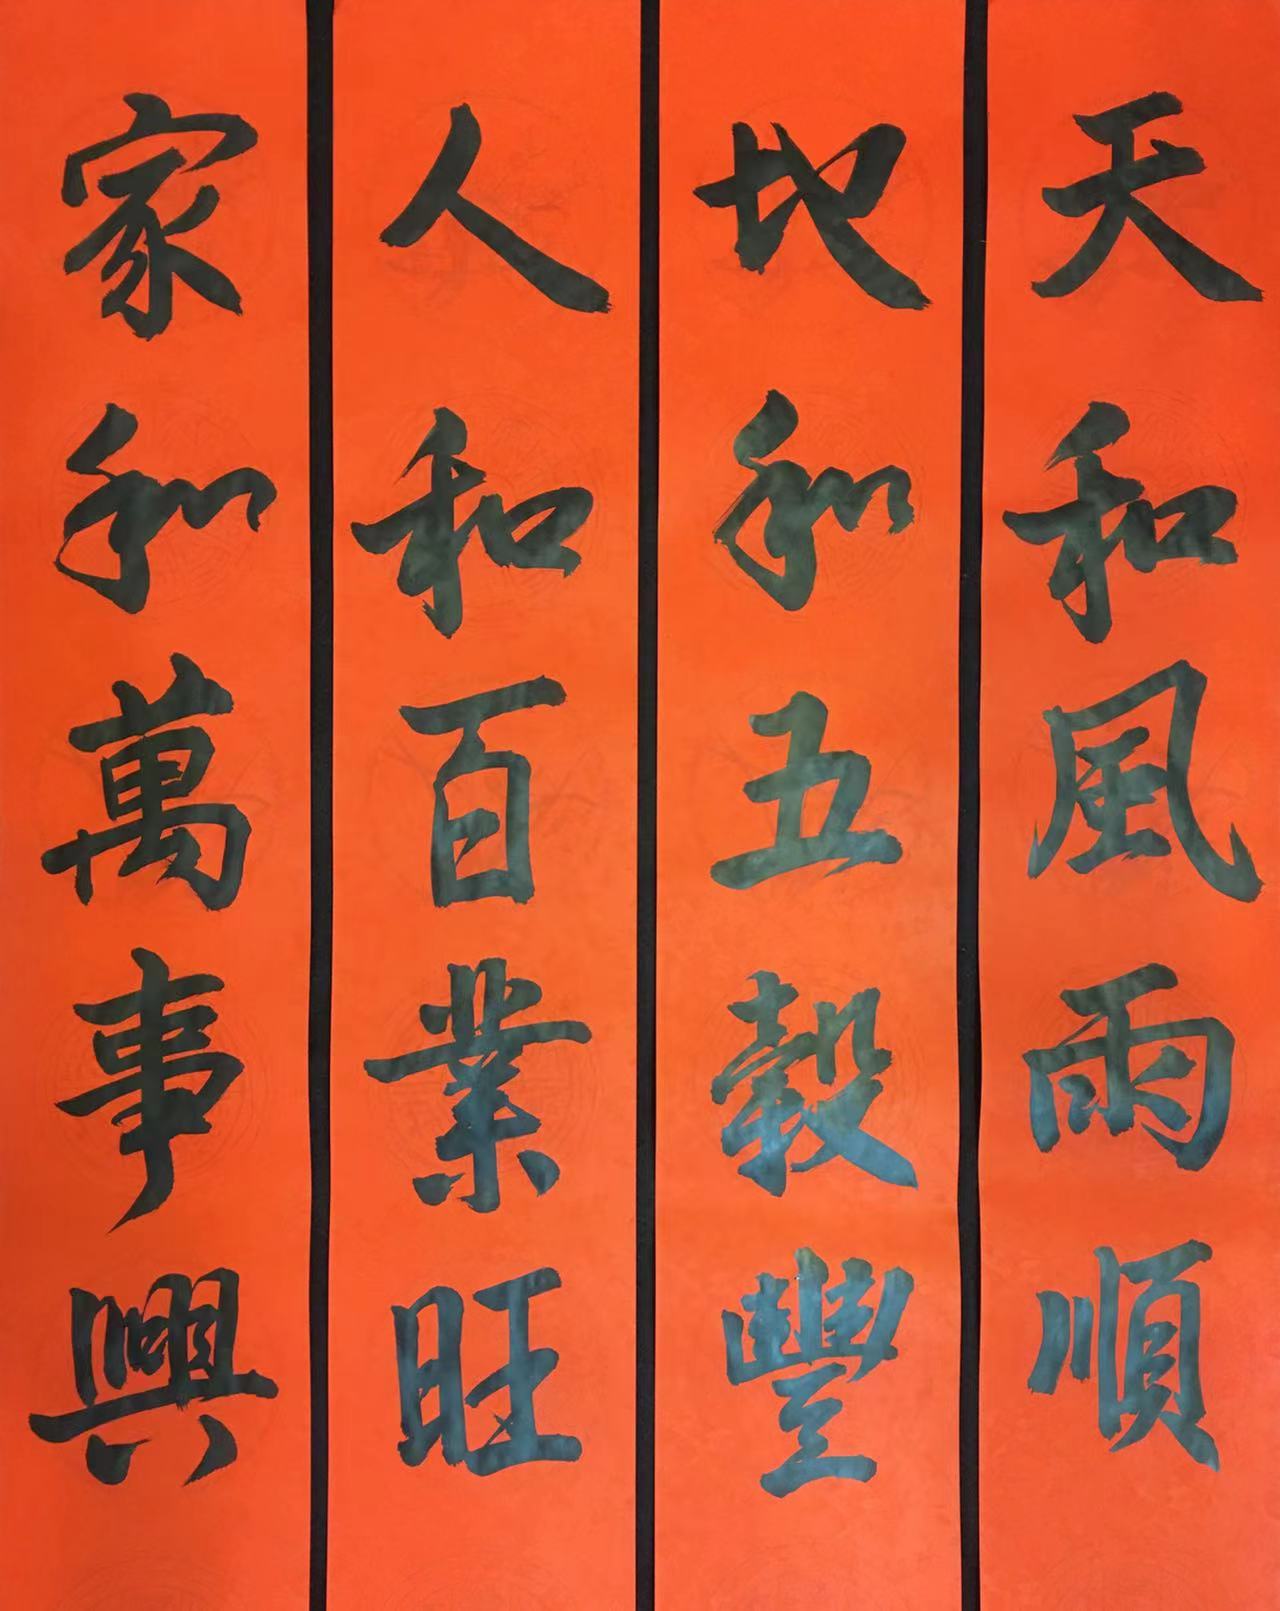 天和風雨順
地和五穀豐
人和百業旺
家和萬事興